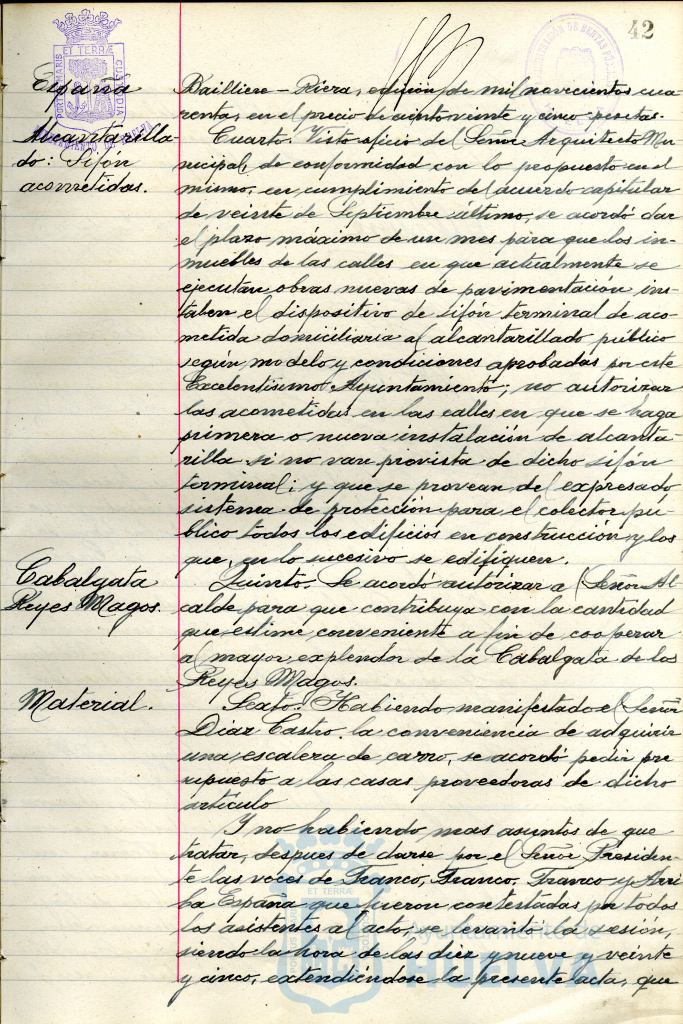 42
ET TERRÆ
PORTUS MARIS
CUSTODIA
España
Alcantarilla
do: Sifón
acometidas.
Bailliere-Riera, edición de mil novecientos cua
renta, en el precio de ciento veinte y cinco pesetas.
Cuarto. Visto oficio del Señor Arquitecto Mu
nicipal, de conformidad con lo propuesto en el
mismo, en cumplimiento del acuerdo capitular
de veinte de Septiembre último, se acordó dar
el plazo máximo de un mes para que los in-
muebles de las calles en que actualmente se
ejecutan obras nuevas de pavimentación ins-
talen el dispositivo de sifón terminal de aco-
metida domiciliaria al alcantarillado público
según modelo y condiciones aprobadas por este
Excelentísimo Ayuntamiento; no autorizar
las acometidas en las calles en que se haga
primera o nueva instalación de alcanta-
rilla si no van provista de dicho sifón
terminal; y que se provean del expresado
sistema de protección para el colector pú-
blico todos los edificios en construcción y los
que, en lo sucesivo se edifiquen.
Cabalgata
Reyes Magos.
Quinto. Se acordó autorizar al Señor Al
calde para que contribuya con la cantidad
que estime conveniente a fin de cooperar
al mayor explendor de la Cabalgata de los
Reyes Magos.
Material.
Sexto. Habiendo manifestado el Señor
Díaz Castro, la conveniencia de adquirir
una escalera de carro, se acordó pedir pre
supuesto a las casas proveedoras de dicho
artículo
Y no habiendo mas asuntos de que
tratar, despues de darse por el Señor Presiden-
te las voces de Franco, Franco, Franco y Arri
ba España que fueron contestadas por todos
los asistentes al acto, se levantó la sesión,
siendo la hora de las diez y nueve y veinte
y cinco, extendiéndose la presente acta, que
ET TERRÆ
Ayuntamiento de
HUELVA